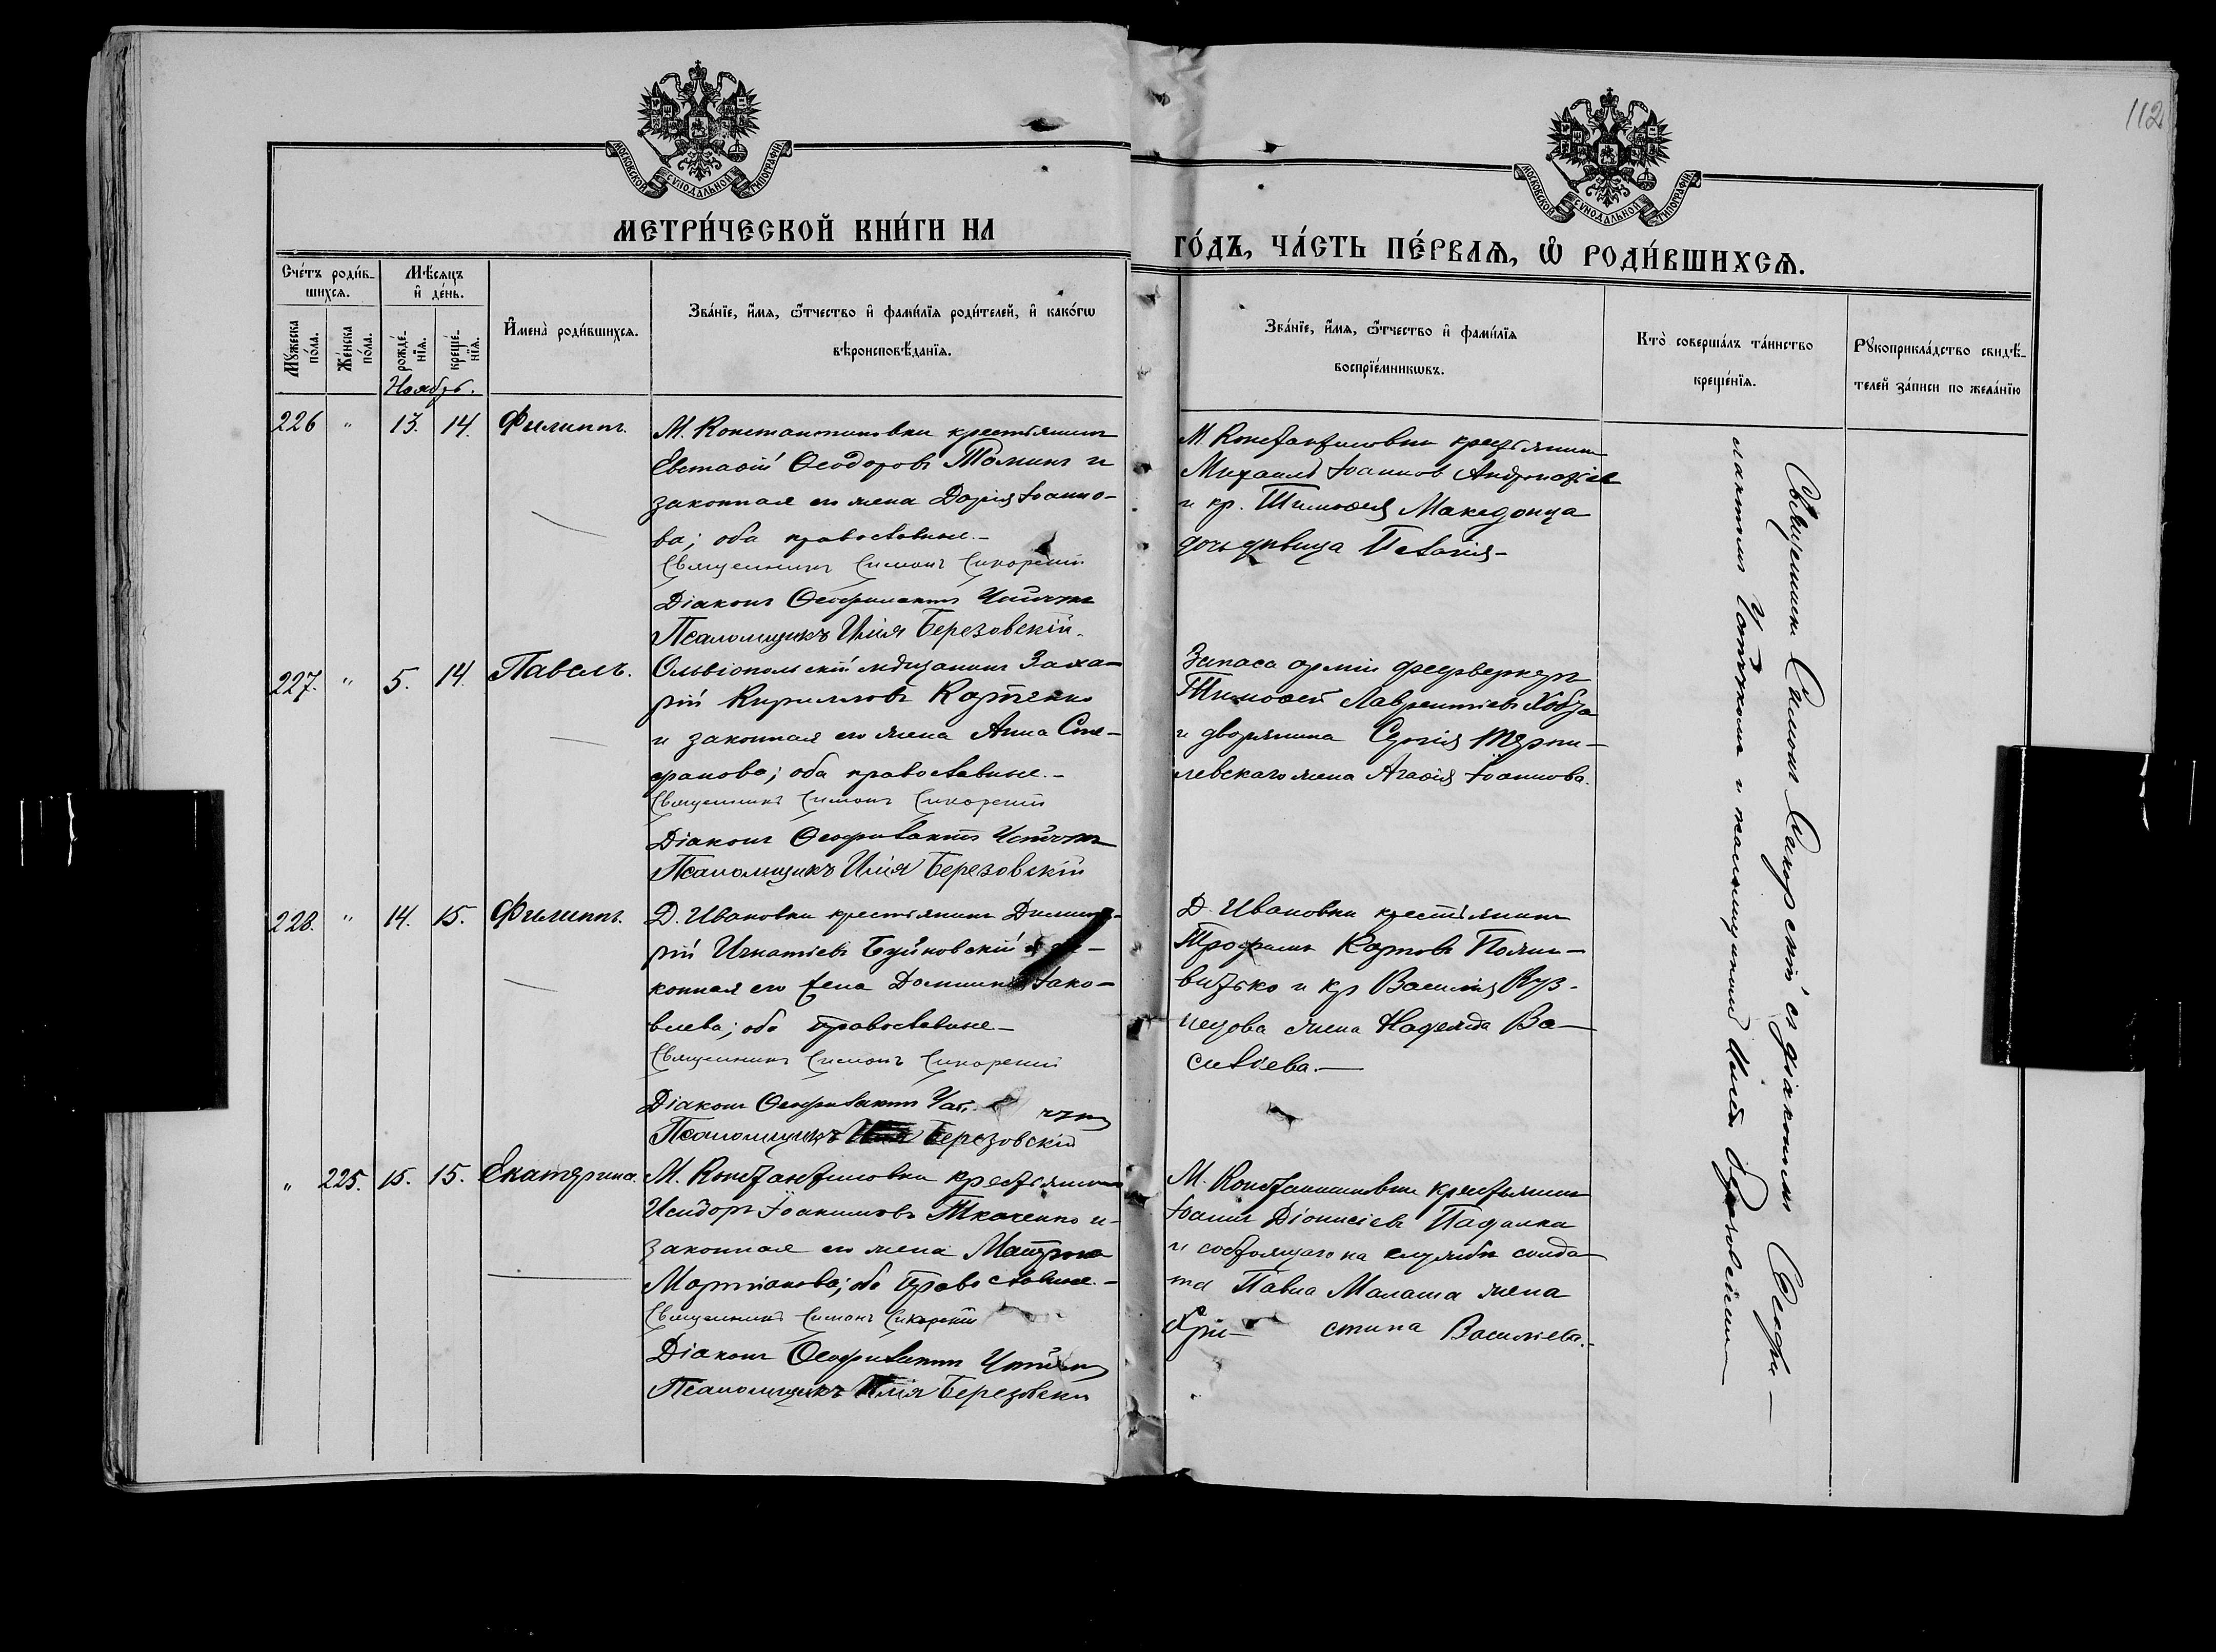 112
МОСКОВСКОЙ СѴНОДАЛЬНОЙ ТИПОГРАФІИ
МОСКОВСКОЙ СѴНОДАЛЬНОЙ ТИПОГРАФІИ
МЕТРИ́ЧЕСКОЙ КНИ́ГИ НА
ГО́ДЪ, ЧА́СТЬ ПЕ́РВАѦ, Ѡ҆ РОДИ́ВШИХСѦ.
Сче́тъ роди́в-
шихсѧ.
Мꙋ́жеска
по́ла.
Же́нска
по́ла.
Мѣ́сѧцъ
и҆ де́нь.
рожде́-
нїѧ.
креще́-
нїѧ.
Ноябрь.
И҆мена̀ роди́вшихсѧ.
Зва́нїе, и҆́мѧ, ѻ҆́тчество и҆ фами́лїѧ роди́телей, и҆ како́гѡ
вѣроисповѣ́данїѧ.
Зва́нїе, и҆́мѧ, ѻ҆́тчество и҆ фами́лїѧ
воспрїе́мникѡвъ.
Кто̀ соверша́лъ та́инство
креще́нїѧ.
Рꙋкоприкла́дство свидѣ́-
телей за́писи по жела́нїю
226 " 13. 14. Филиппъ.
М. Константиновки крестьянинъ
Евстафій Ѳеодоровъ Томинъ и
законная его жена Дарія Іоанно-
ва; оба православные.-
Священникъ Симонъ Сикорскій
Діаконъ Ѳеофилактъ
Псаломщикъ Илія Березовскій.
М. Константиновки крестьянинъ
Михаилъ Іоанновъ
и кр. Тимоѳея Македонца
дочь дѣвица Пелагія-
227. " 5. 14. Павелъ.
Ольвіопольскій мѣщанинъ Заха-
рій Кирилловъ Карпенко
и законная его жена Анна Сте-
фанова; оба православные.-
Священникъ Симонъ Сикорскій
Діаконъ Ѳеофилактъ
Псаломщикъ Илія Березовскій
Запаса арміи фейерверкеръ
Тимоѳей Лаврентіевъ Кобза
и дворянина Сергія Терпи-
левскаго жена Агаѳія Іоаннова.
228. " 14. 15. Филиппъ.
Д. Ивановки крестьянинъ Димит-
рій Игнатіевъ Буйновскій и за-
конная его жена Домникія Іако-
влева; оба православные-
Священникъ Симонъ Сикорскій
Діаконъ Ѳеофилактъ
Псаломщикъ Илія Березовскій
Д. Ивановки крестьянинъ
Трофимъ Карповъ Поли-
витько и кр Василія Куз-
нецова жена Надежда Ва-
силіева.-
" 225. 15. 15. Екатерина.
М. Константиновки крестьянинъ
Исидоръ Іоакимовъ Ткаченко и
законная его жена Матрона
Мартіанова; оба православные.-
Священникъ Симонъ Сикорскій
Діаконъ Ѳеофилактъ
Псаломщикъ Илія Березовскій
М. Константиновки крестьянинъ
Іоаннъ Діонисіевъ Падалка
и состоящаго на службѣ солда-
та Павла Малаша жена
Хри- стина Василіева.-
Священникъ Симонъ Сикорскій съ діакономъ Ѳеофи-
лактомъ и псаломщикомъ Иліею Березовскимъ